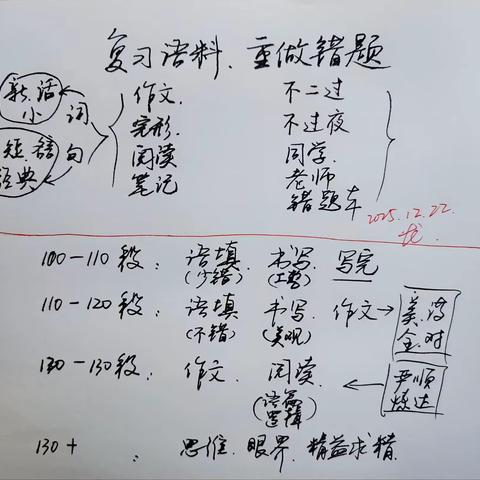 复习语料、重做错题
作文. 不二过
小 词
完形. 不过夜
阅读 同学.
短. 句
笔记 老师
经典
错题本
2025.12.22.
100-110段: 语填. 书写. 写完
(少错) (工整)
110-120段: 语填 书写. 作文→ 美.
(不错) (美观) 全.对
130-130段: 作文. 阅读. ← 严顺
(语篇逻辑) 炼达
130+ : 思维.眼界.精益求精.